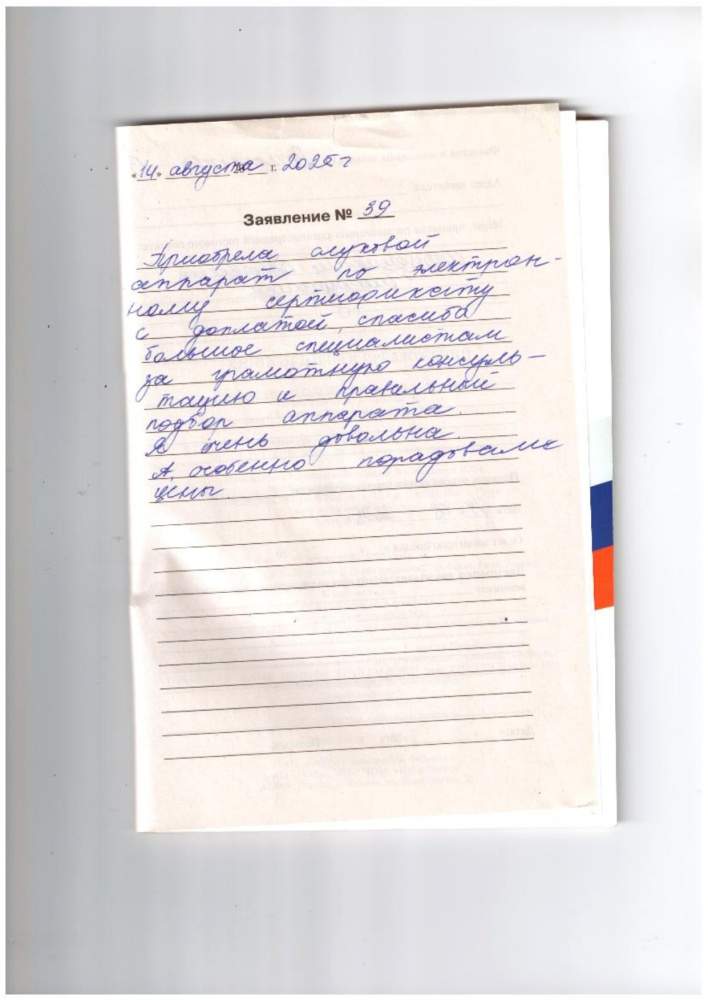 «14» августа г. 2025 г
Заявление № 39
Приобрела слуховой
аппарат по электрон-
ному сертификату
с доплатой, спасибо
большое специалистам
за грамотную консуль-
тацию и правильный
подбор аппарата.
Я очень довольна.
А особенно порадовали
цены.